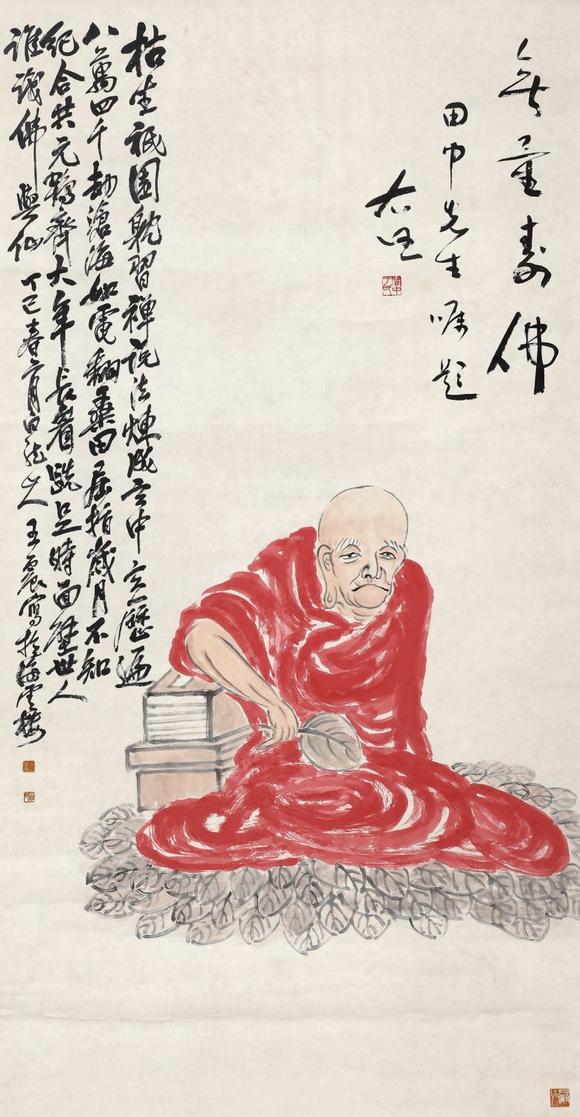 無量壽佛
田中先生囑題
右任
枯坐祇園躭習禪說法煉成空中玄歷遍
八萬四千劫滄海如電翻桑田屈指歲月不知
紀合共元鶴齊大年長眉跣足時面壁世人
誰識佛與仙 丁巳春二月白龍山人王震寫於海雲樓